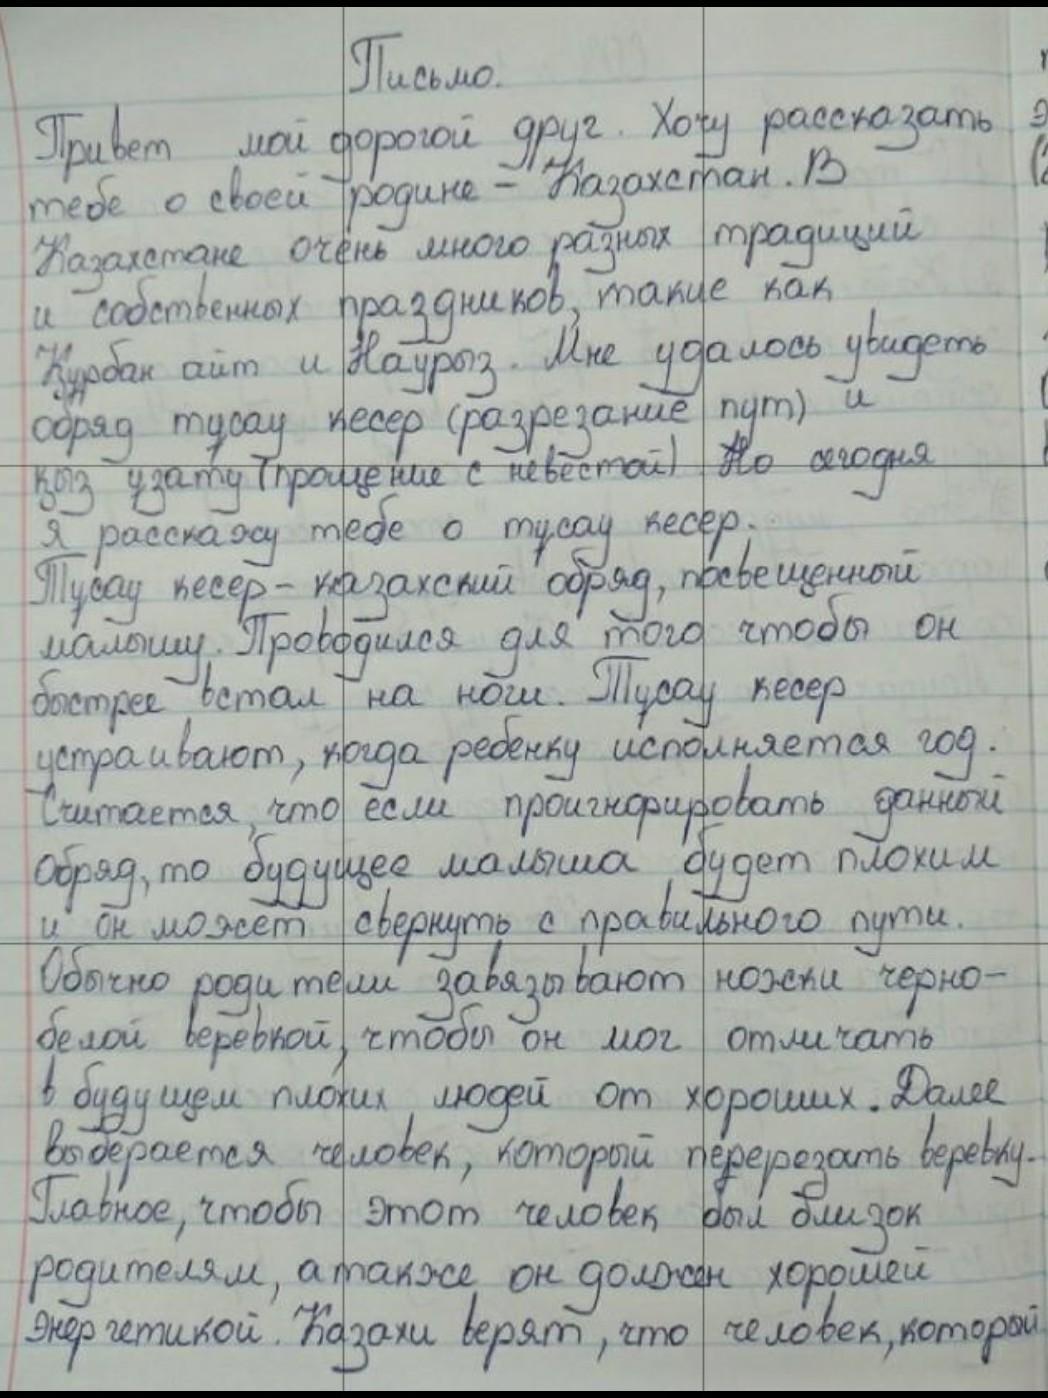 Письмо.
Привет мой дорогой друг. Хочу рассказать
тебе о своей родине - Казахстан. В
Казахстане очень много разных традиций
и собственных праздников, такие как
Құрбан айт и Наурыз. Мне удалось увидеть
обряд тұсау кесер (разрезание пут) и
қыз ұзату (прощение с невестой) Но сегодня
я расскажу тебе о тұсау кесер.
Тұсау кесер - казахский обряд, посвещенный
малышу. Проводился для того чтобы он
быстрее встал на ноги. Тұсау кесер
устраивают, когда ребенку исполняется год.
Считается, что если проигнорировать данный
обряд, то будущее малыша будет плохим
и он может свернуть с правильного пути.
Обычно родители завязывают ножки черно-
белой веревкой, чтобы он мог отличать
в будущем плохих людей от хороших. Далее
выберается человек, который перерезать веревку.
Главное, чтобы этот человек был близок
родителям, а также он должен хорошей
энергетикой. Казахи верят, что человек, который